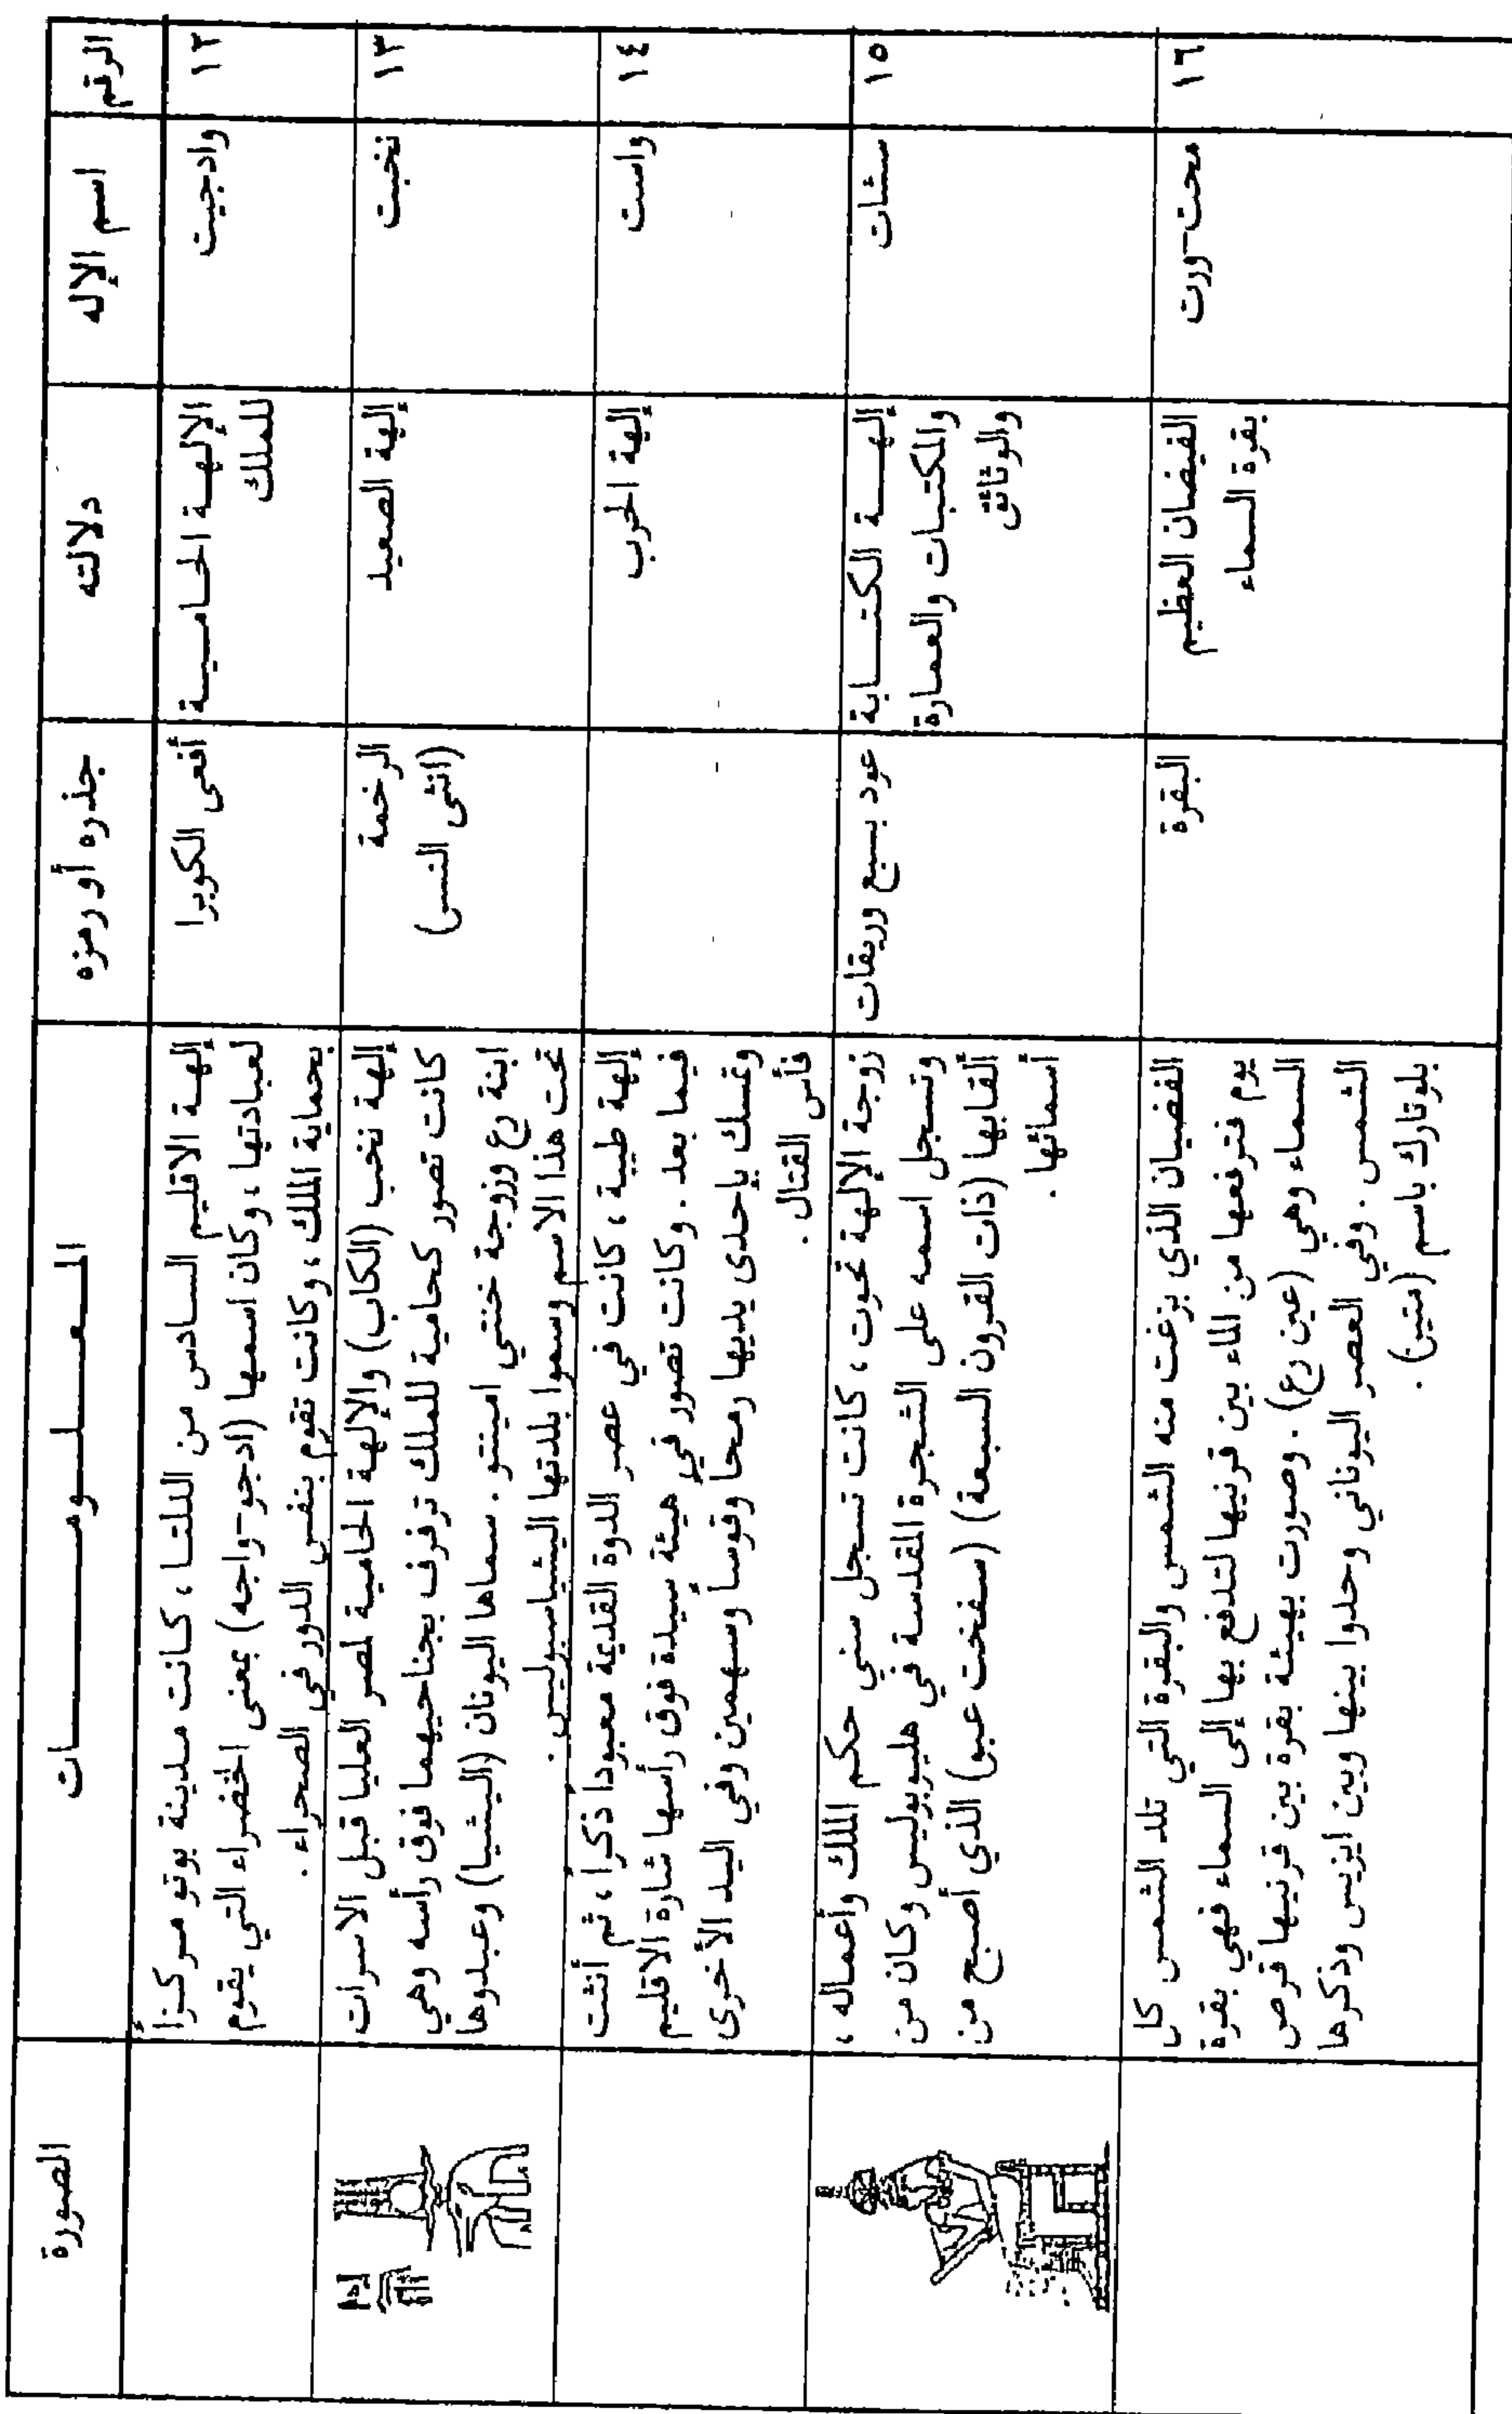 الرقم
اسم الإله
دلالته
جذره أو رمزه
المـعـلـومـات
الصورة
١٢
وادجيت
الإلهة الحامية
للملك
أفعى الكوبرا
إلهة الاقليم السادس من الدلتا، كانت مدينة بوتو مركزاً
لعبادتها، وكان اسمها (ادجو-واجه) بمعنى الخضراء التي يقوم
بحماية الملك، وكانت تقوم بنفس الدور في الصحراء.
١٣
نخبت
إلهة الصعيد
الرخمة
(انثى النسر)
إلهة نخب (الكاب) والإلهة الحامية لمصر العليا قبل الاسرات
كانت تصور كحامية للملك ترفرف بجناحيهما فوق رأسه وهي
ابنة رع وزوجة خنتي امينتو. سماها اليونان (اليثيا) وعبدوها
تحت هذا الاسم وسموا بلدتها اليثياسبوليس.
١٤
واست
إلهة الحرب
إلهة طيبة، كانت في عصر الدوة القديمة معبودا ذكراً، ثم أنثت
فيما بعد. وكانت تصور في هيئة سيدة فوق رأسها شارة الاقليم
وتمسك بإحدى يديها رمحا وقوساً وسهمين وفي اليد الأخرى
فأس القتال.
١٥
سشات
إلهة الكتابة
والمكتبات والعمارة
والوثائق
عود بسبع وريقات
زوجة الإلهة تحوت، كانت تسجل سني حكم الملك وأعماله،
وتسجل اسمه على الشجرة المقدسة في هليوبوليس وكان من
ألقابها (ذات القرون السبعة) (سفخت عبو) الذي أصبح من
أسمائها.
١٦
محت-ورت
الفيضان العظيم
بقرة السماء
البقرة
الفضيان الذي بزغت منه الشمس والبقرة التي تلد الشمس كل
يوم فترفعها من الماء بين قرنيها لتدفع بها إلى السماء فهي بقرة
السماء وهي (عين رع). وصورت بهيئة بقرة بين قرنيها قرص
الشمس. وفي العصر اليوناني وحدوا بينها وبين ايزيس وذكرها
بلوتارك باسم (متير).